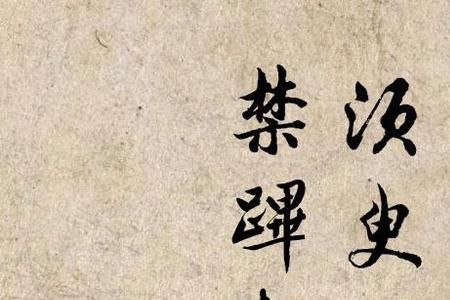 須臾
禁蹕